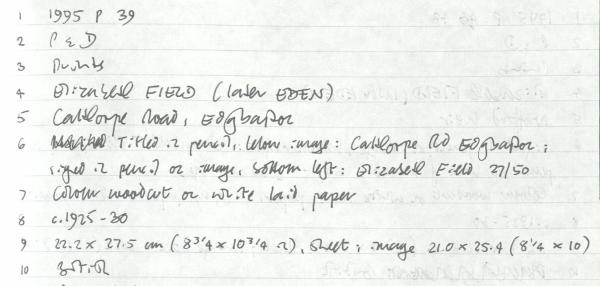 1 1995 P 39
2 P & D
3 Prints
4 Elizabeth FIELD (later EDEN)
5 Calthorpe Road, Edgbaston
6 Titled in pencil, below image: Calthorpe Rd Edgbaston;
signed in pencil on image, bottom left: Elizabeth Field 27/50
7 Colour woodcut on white laid paper
8 c.1925-30
9 22.2 x 27.5 cm (8 3/4 x 10 3/4 in), sheet; image 21.0 x 25.4 (8 1/4 x 10)
10 British